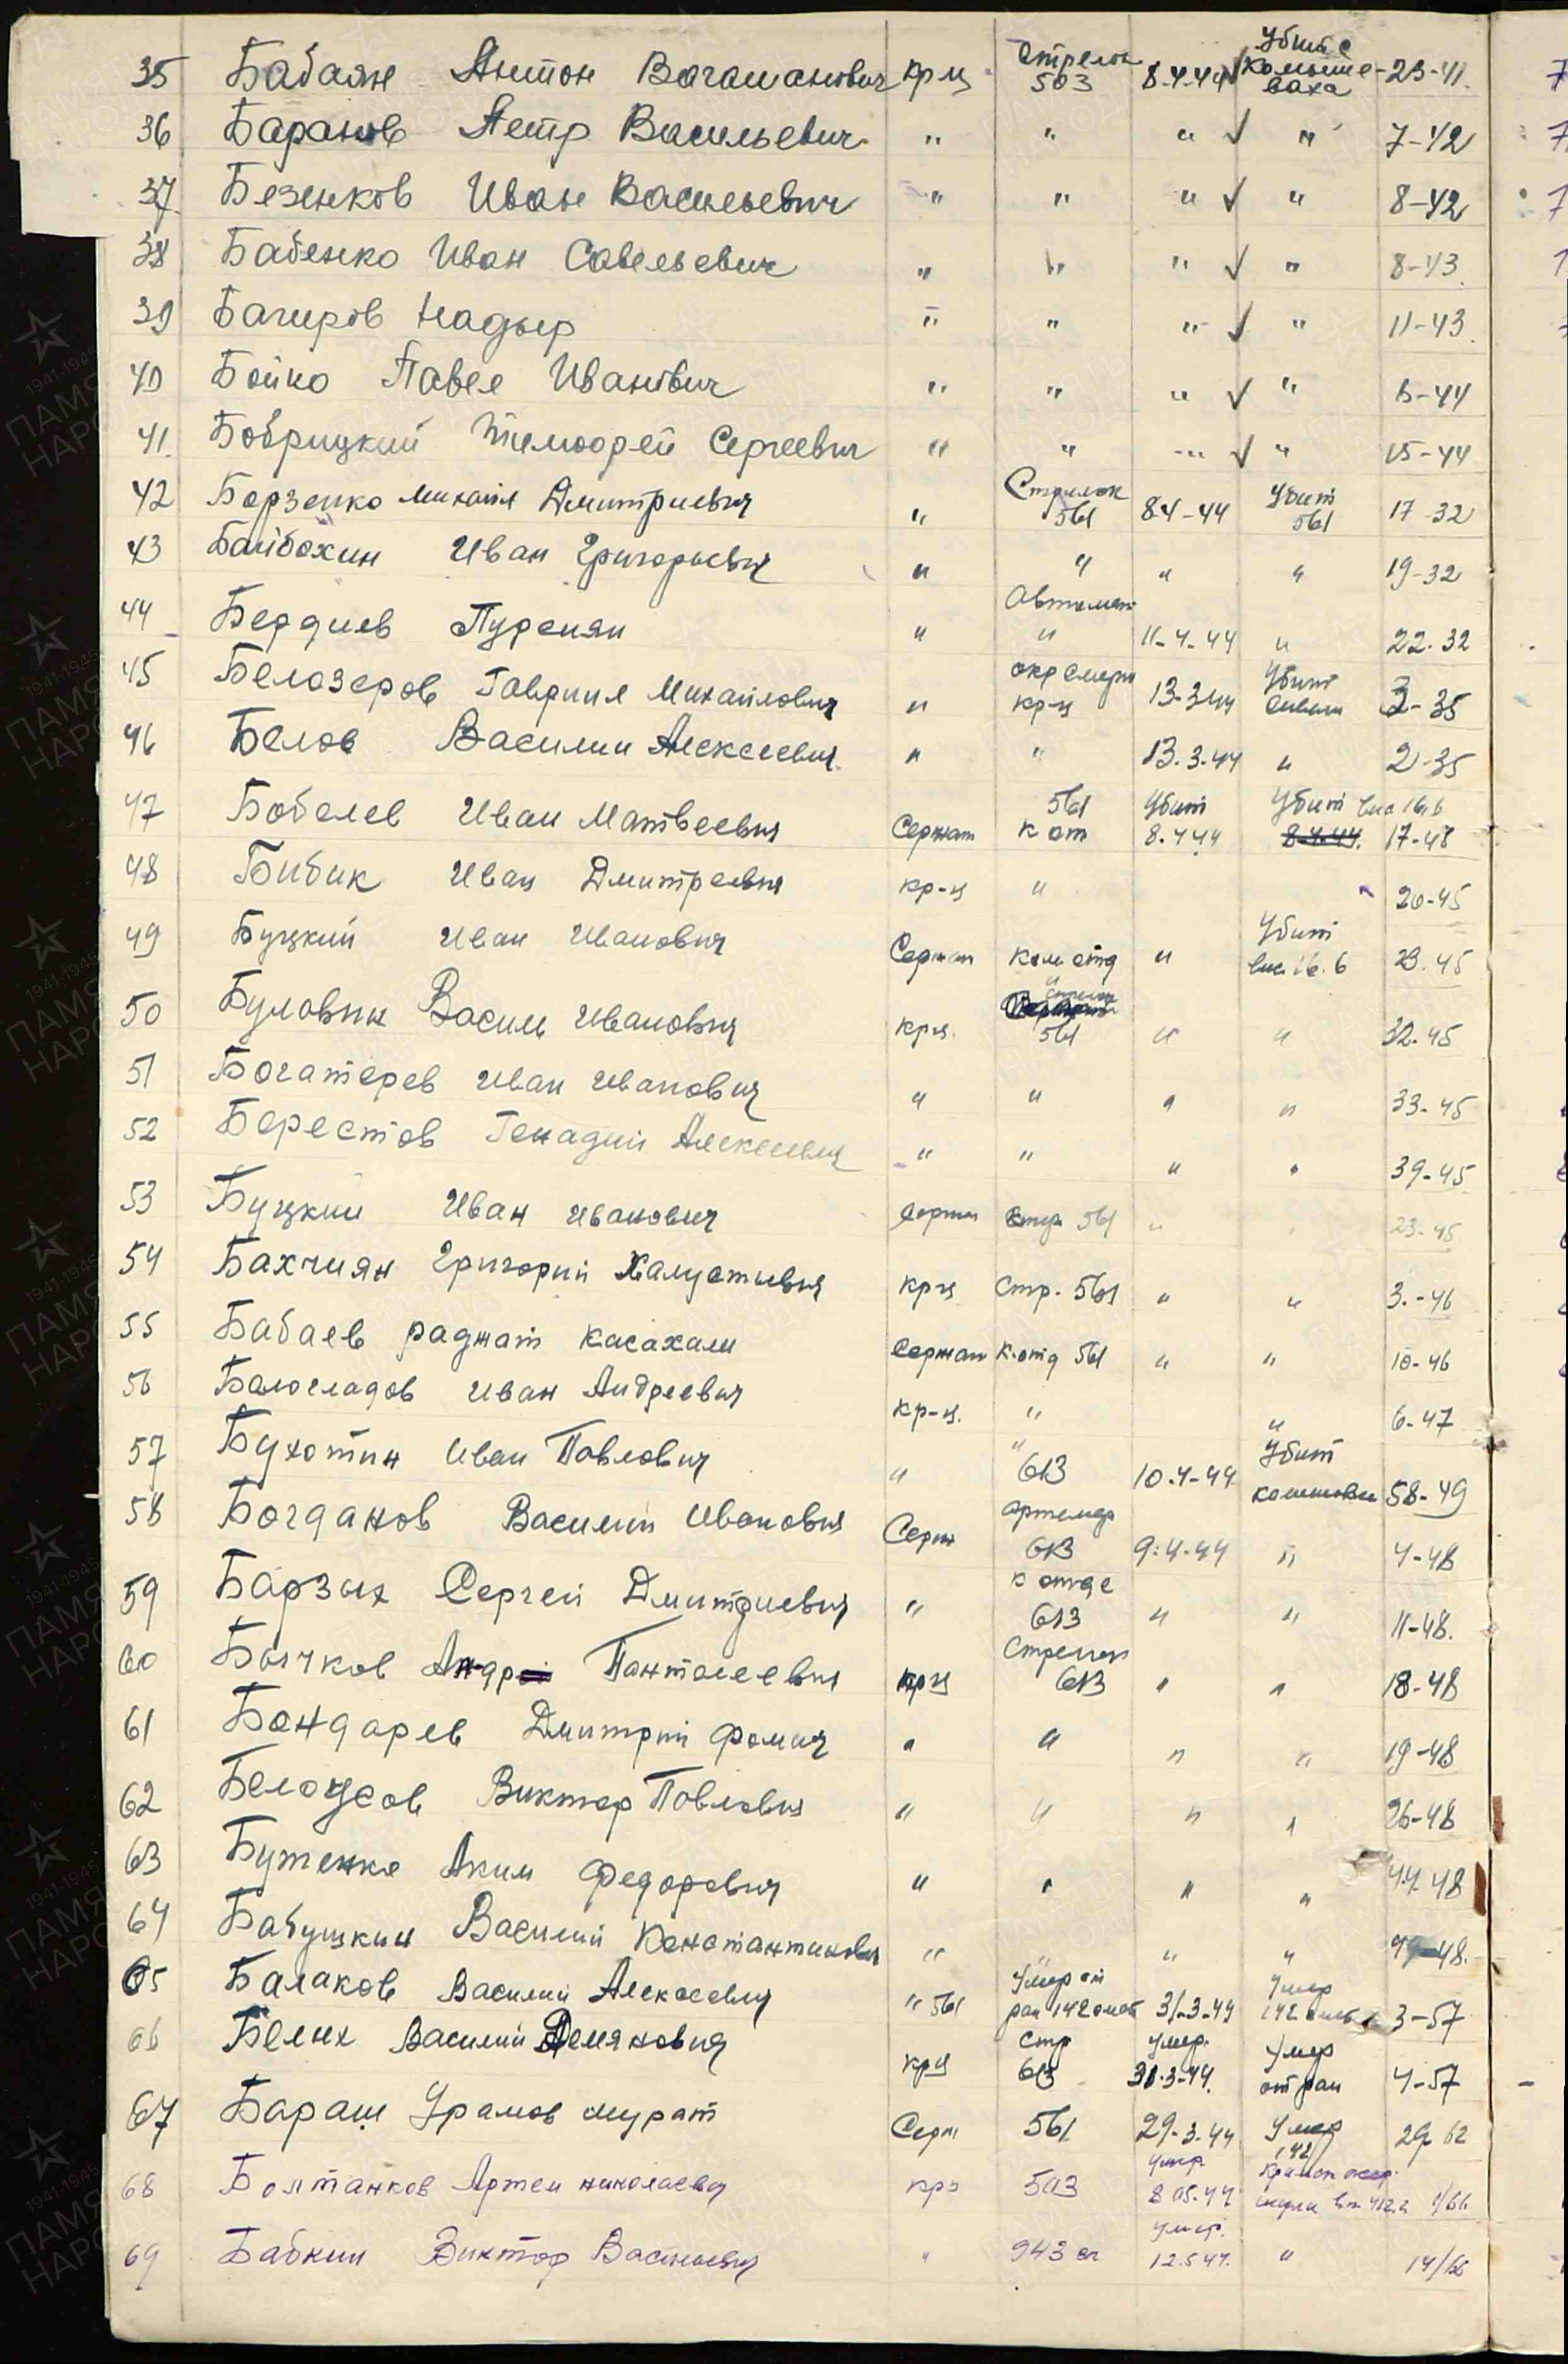 35 Бабаян Антон Вагаманович кр-ц стрелок 503 8-4-44 Убит с Комыше-ваха 23-41
36 Баранов Петр Васильевич " " " " 7-42
37 Безенков Иван Васильевич " " " " 8-42
38 Бабенко Иван Савельевич " " " " 8-43
39 Багиров Надыр " " " " 11-43
40 Бойко Павел Иванович " " " " 6-44
41 Бобрицкий Тимофей Сергеевич " " " " 15-44
42 Борзенко Михаил Дмитриевич " Стрелок 561 8 4-44 Убит 561 17-32
43 Байбохин Иван Григорьевич " " " " 19-32
44 Бердиев Пурсиян " Автомат " 11-4-44 " 22-32
45 Белозеров Гавриил Михайлович " кр-ц 13-3 44 Убит 3-35
46 Белов Василии Алексеевич " " 13.3-44 " 2-35
47 Бобелев Иван Матвеевич Сержант 561 к от Убит 8.4 44 Убит выс 16,6 8.4.44. 17-48
48 Бибик Иван Дмитреевич кр-ц " 20-45
49 Буцкий Иван Иванович Сержан ком отд " Убит выс. 16.6 23-45
50 Буловин Васили Иванович кр-ц. стрелок 561 " " 32-45
51 Богатерев Иван Иванович " " " " 33-45
52 Берестов Генадий Алексеевич " " " " 39-45
53 Буцкий Иван Иванович сержан Стр 561 " " 23-45
54 Бахчиян Григорий Халустович кр-ц Стр. 561 " " 3.-46
55 Бабаев раджат касахали Сержан к.отд 561 " " 10-46
56 Балогладов Иван Андреевич кр-ц. " " 6-47
57 Бухотин Иван Павлович " " 613 10.4-44 Убит 58-49
58 Богданов Василий Иванович Серж 613 9-4-44 " 4-48
59 Барзых Сергей Дмитриевич " к отде 613 " " 11-48.
60 Бычков Андр Пантелеевич кр-ц Стрелок 613 " " 18-48
61 Бондарев Дмитрий Фомич " " " " 19-48
62 Белоусов Виктор Павлович " " " " 26-48
63 Бутенко Аким Федорович " " " " 44-48
64 Бабушкин Василий Константинович " " " " 49-48.
65 Балаков Василий Алексеевич " 561 Умер от ран 142 омсб 31-3-44 Умер 142 омсб 3-57
66 Белих Василий Демянович кр-ц Стр 613 Умер. 31.3-44. Умер от ран 4-57
67 Бараш Урамов мурат Серж 561 29-3-44 Умер 142 29-62
68 Болтанков Артем николаевич крз 503 Умер. 8 05.44 1/66
69 Бабкин Виктор Васильевич " 943 сп умер. 12.5 44. " 14/66